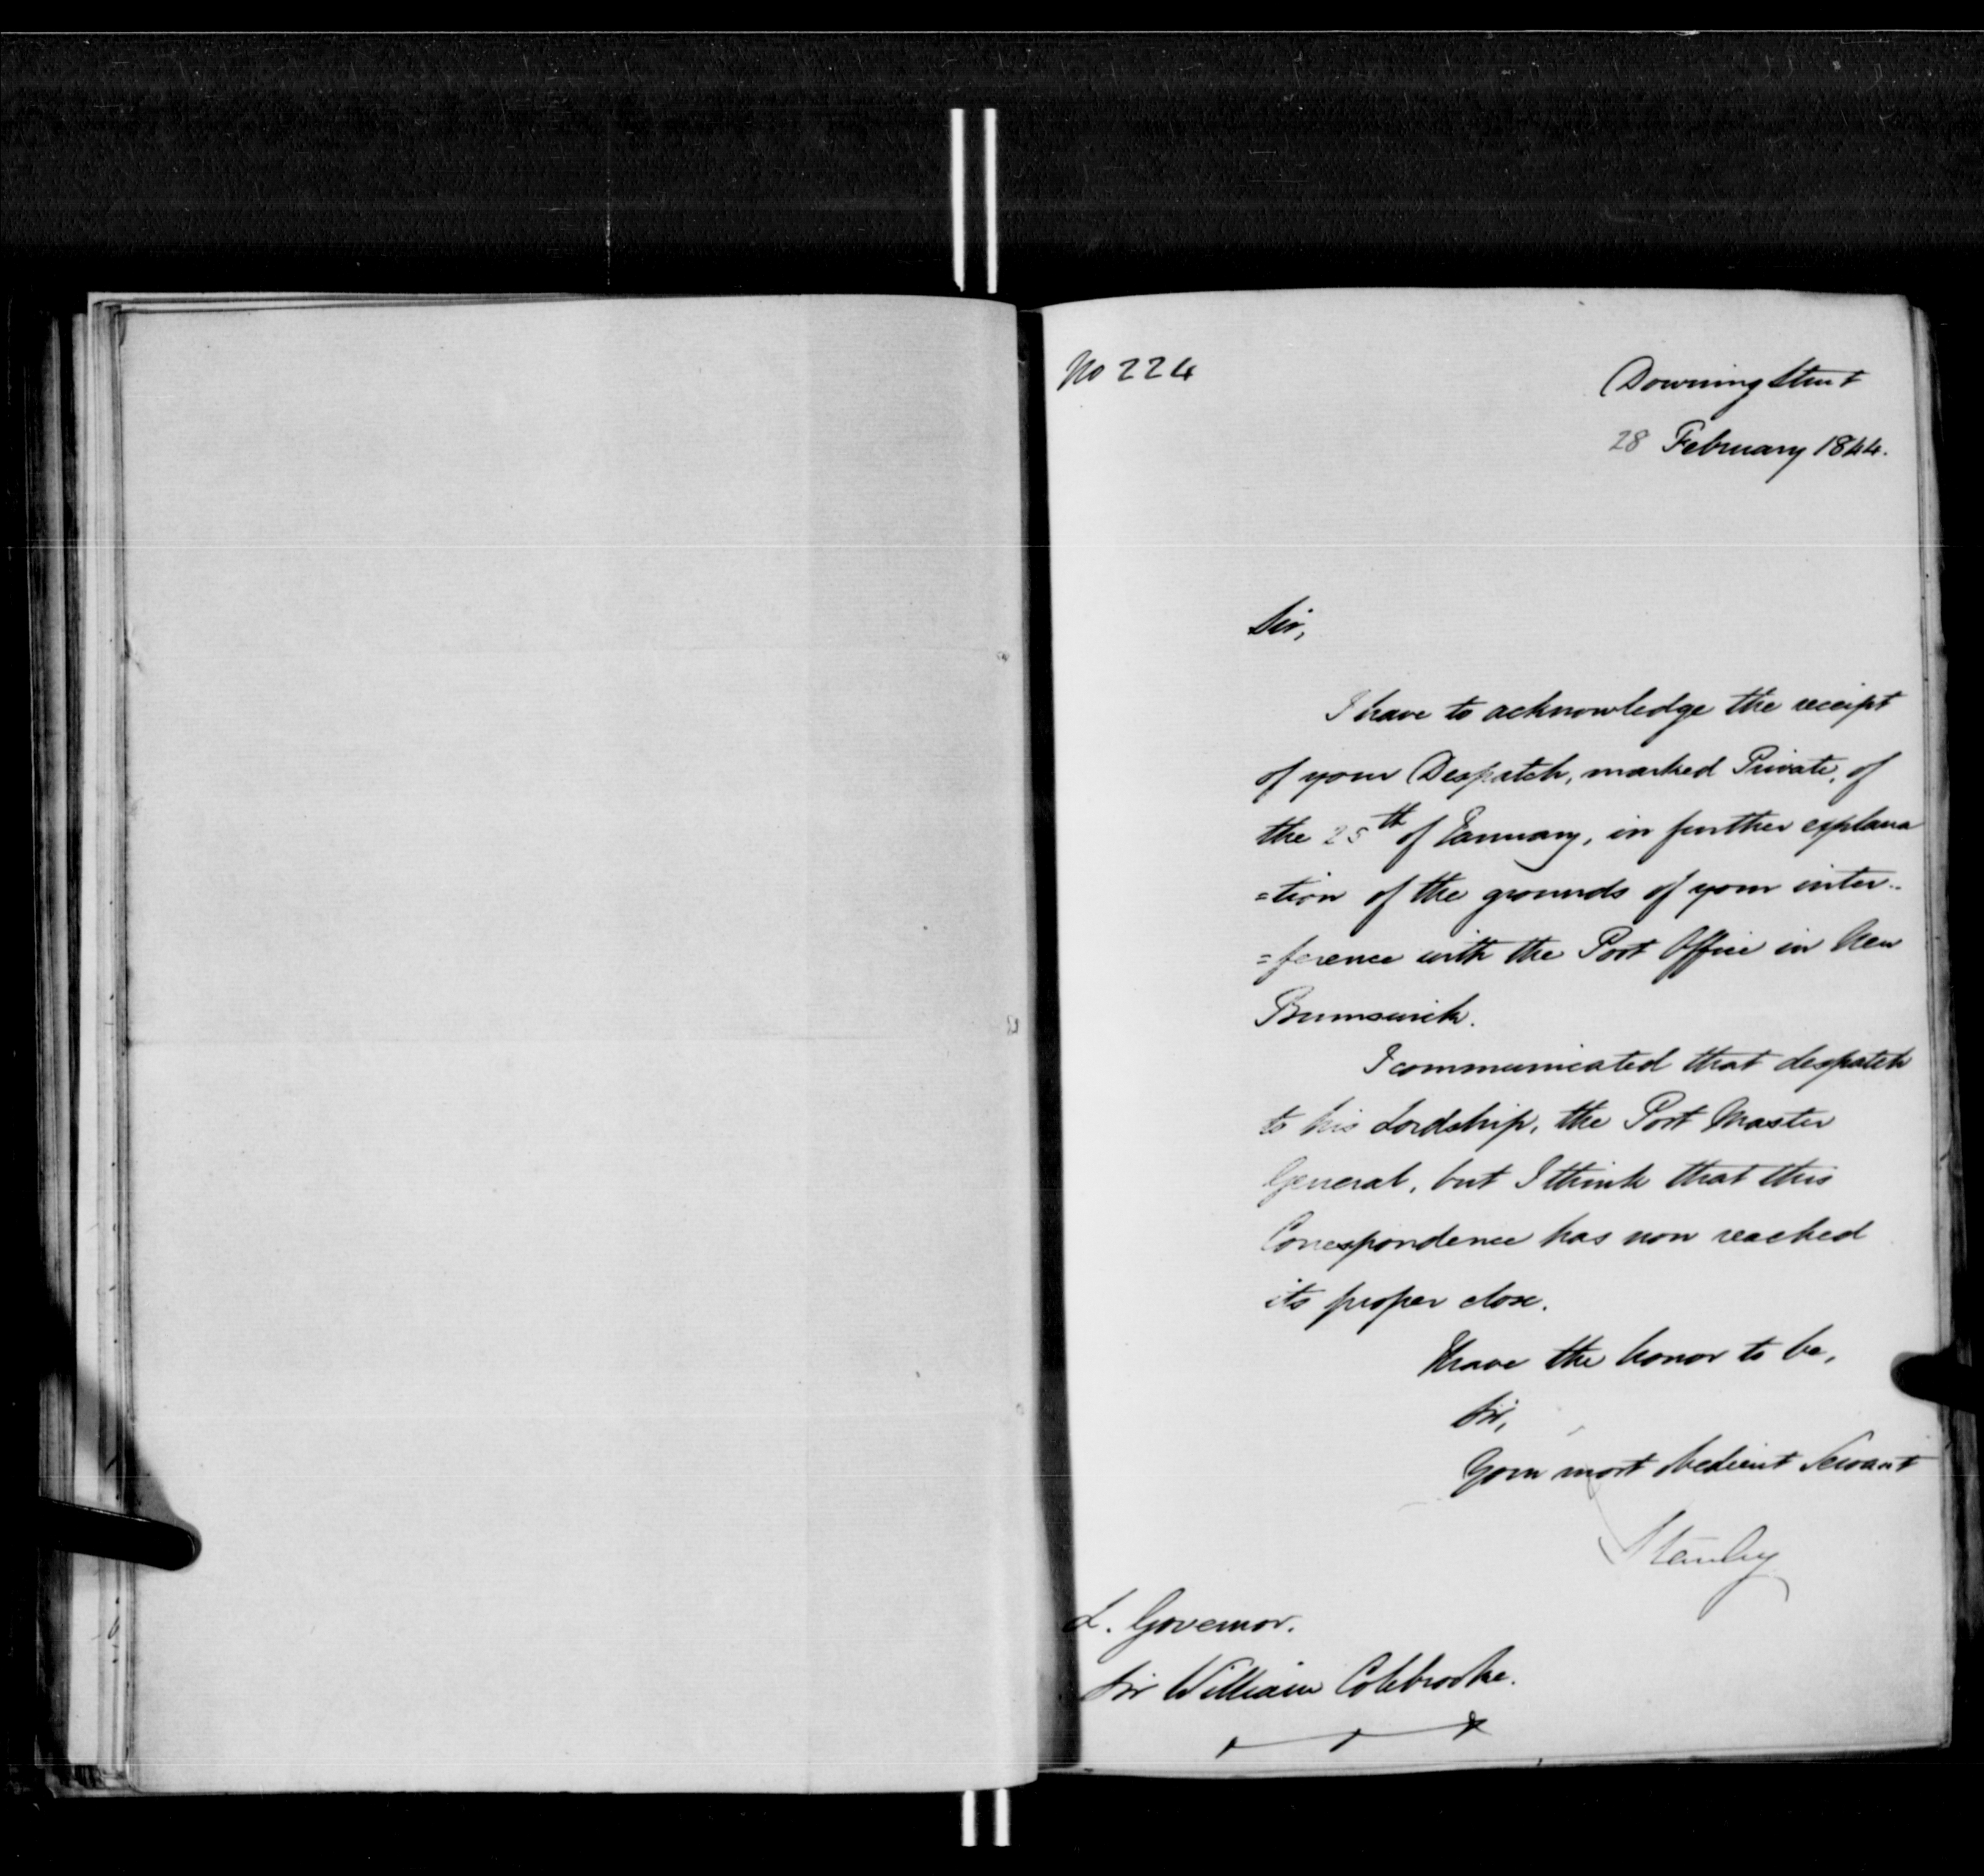 No 224
Downing Street
28 February 1844.
Sir,
I have to acknowledge the receipt
of your Despatch, marked Private, of
the 25th of January, in further explana
=tion of the grounds of your inter-
=ference with the Post Office in New
Brunswick.
I communicated that despatch
to his Lordship, the Post Master
General, but I think that this
Correspondence has now reached
its proper close.
I have the honor to be,
Sir,
Your most obedient Servant
Stanley
L. Governor.
Sir William Colebrooke.